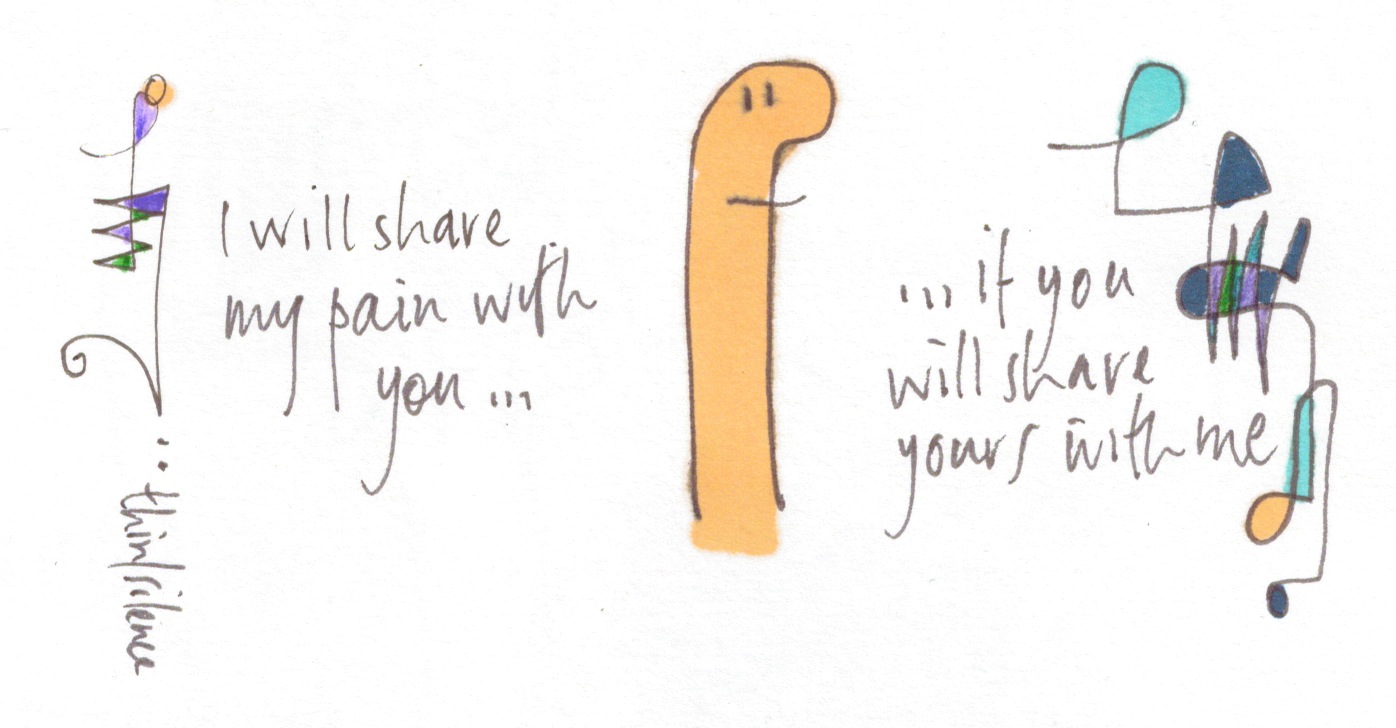 I will share
my pain with
you ...
... if you
will share
yours with me
thin/silence